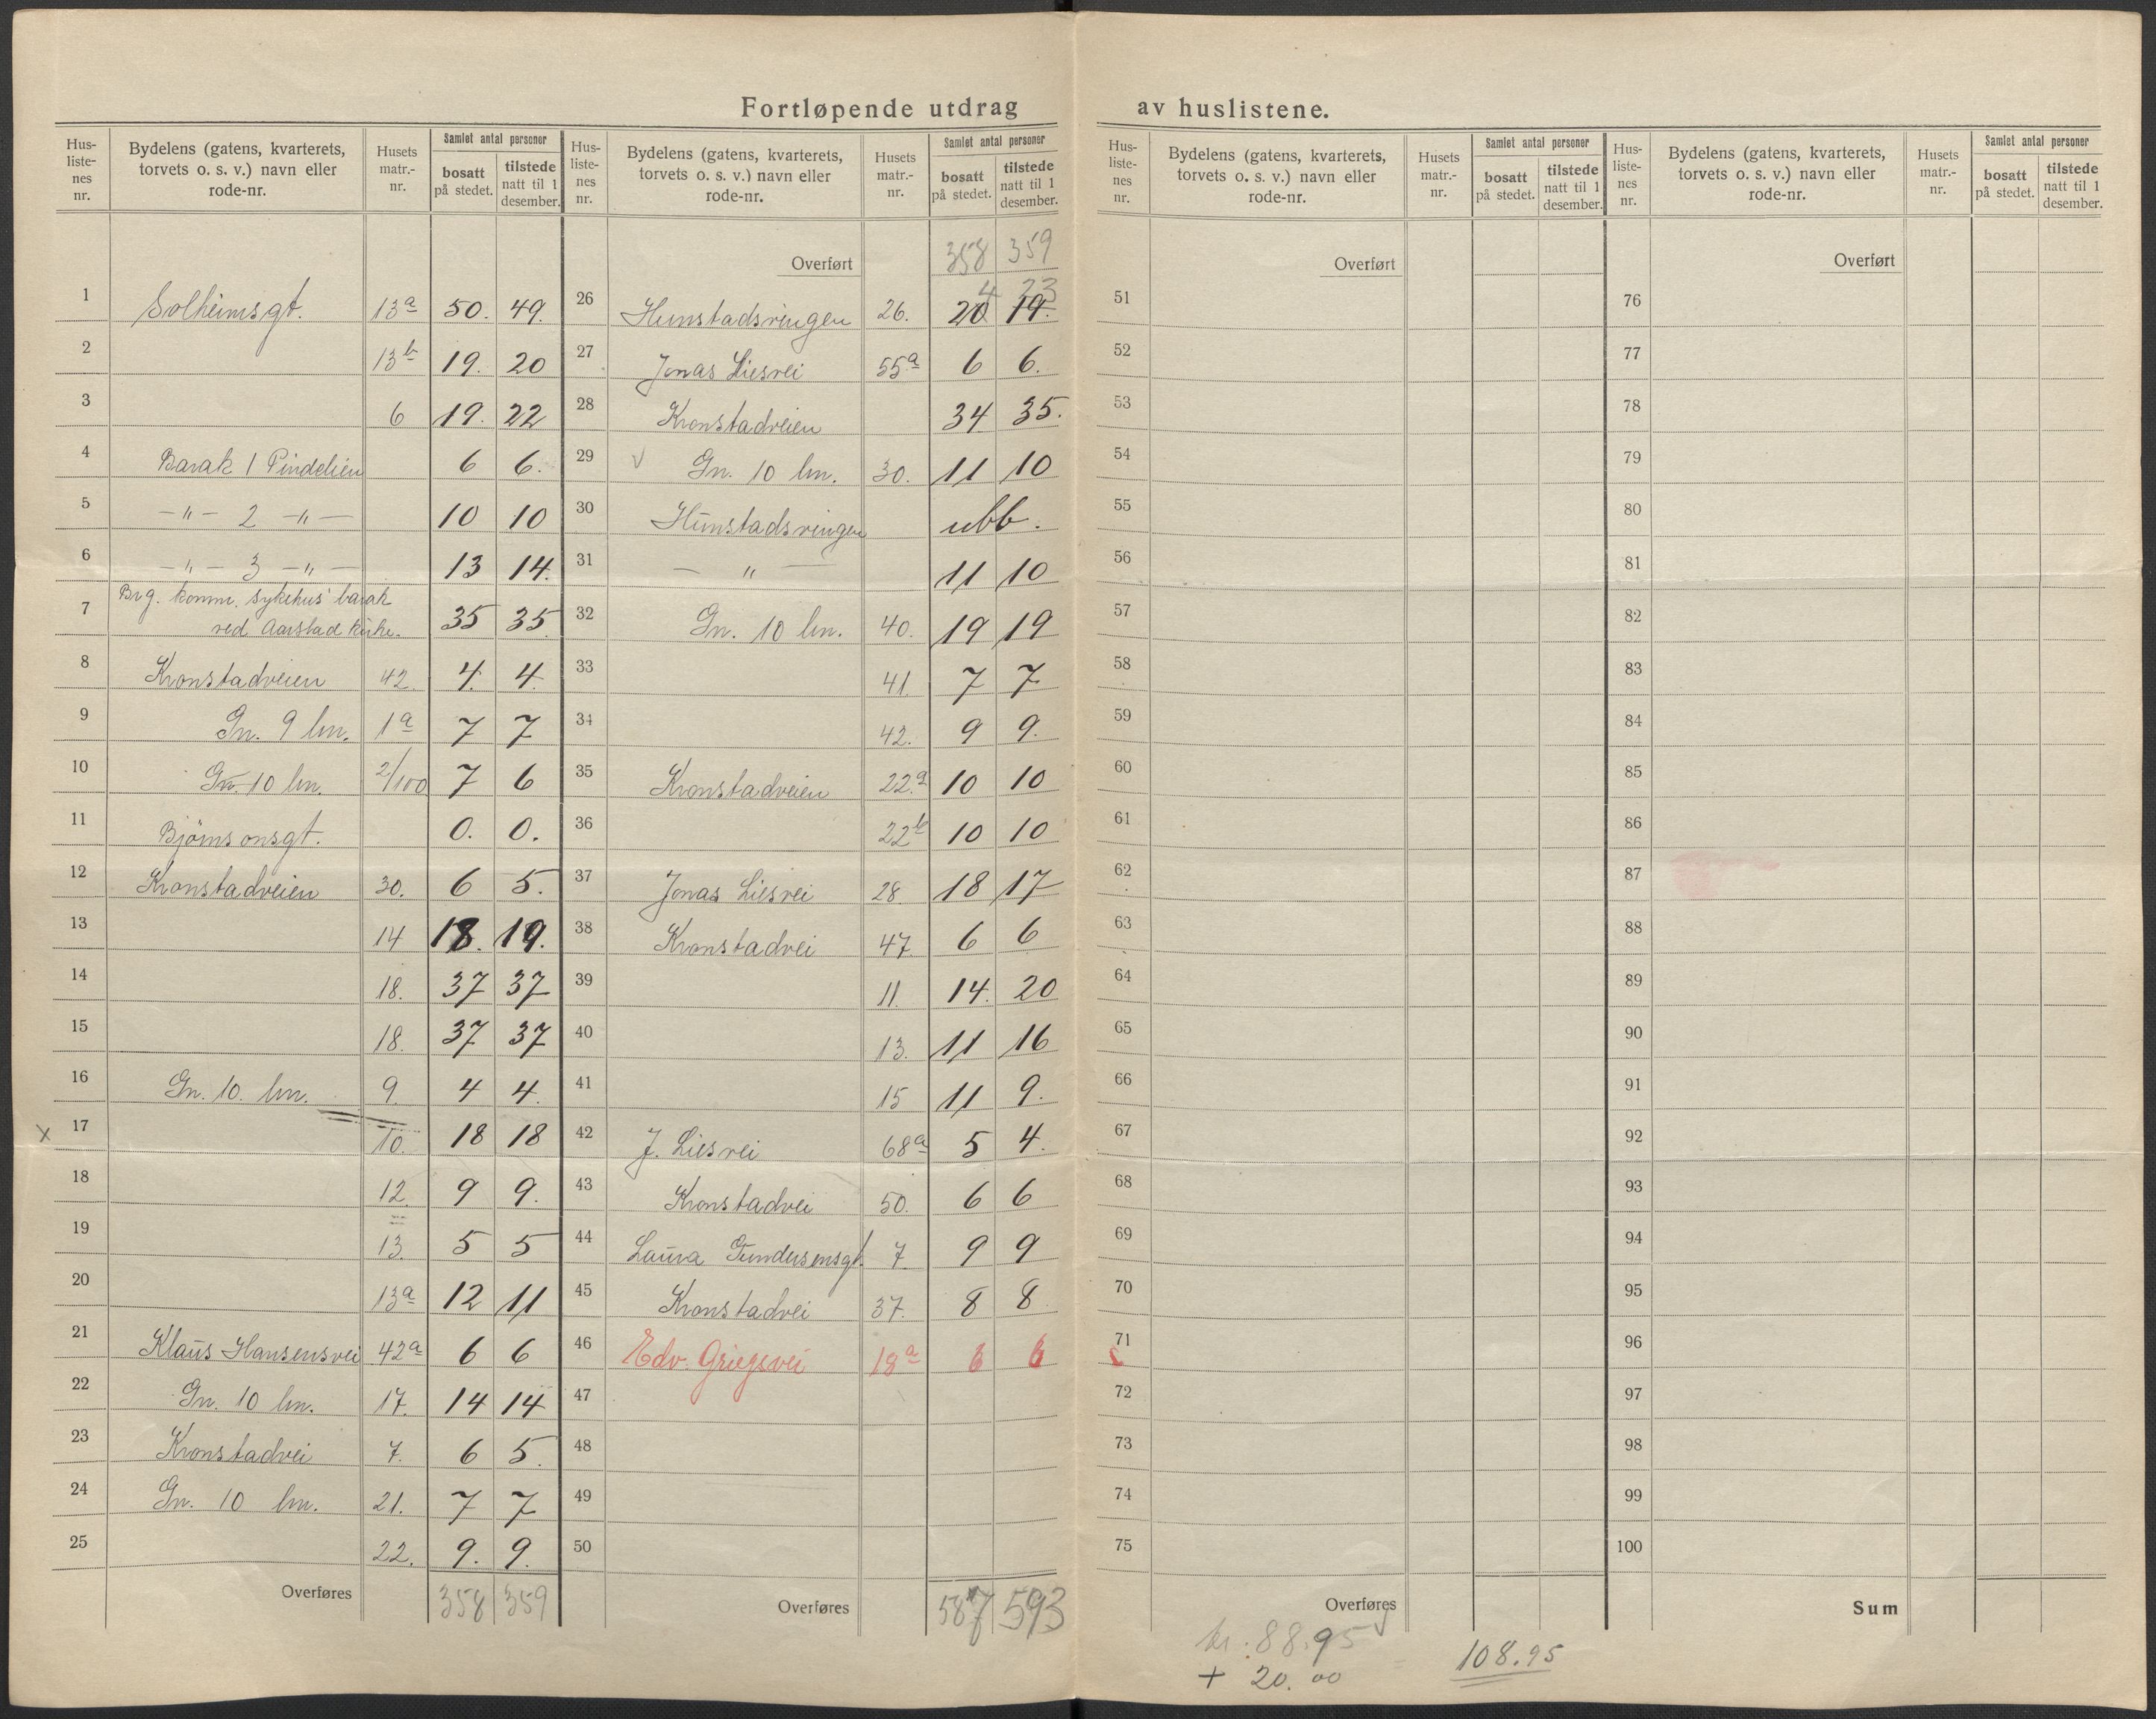 Fortløpende utdrag av huslistene.
Hus-listenes nr. Bydelens (gatens, kvarterets, torvets o. s. v.) navn eller rode-nr. Husets matr.-nr. Samlet antal personer bosatt på stedet. tilstede natt til 1 desember.
1 Solheimsgt. 13a 50. 49.
2 13b 19. 20
3 6 19. 22
4 Barak 1 Pindelien 6 6.
5 -"- 2 -"- 10 10
6 -"- 3 -"- 13 14.
7 Brg. komm. sykehus' barak
ved Aarstad kirke. 35 35
8 Kronstadveien 42 4. 4.
9 Gn. 9 bn. 1a 7 7
10 Gn. 10 bn. 2/100 7 6
11 Björnsonsgt. 0. 0.
12 Kronstadveien 30. 6 5.
13 14 18. 19.
14 18. 37 37
15 18. 37 37
16 Gn. 10. bn. 9. 4 4.
x 17 10. 18 18
18 12. 9 9.
19 13. 5 5
20 13a 12 11
21 Klaus Hansensvei 42a 6 6
22 Gn. 10 bn. 17. 14 14
23 Kronstadvei 7. 6 5.
24 Gn. 10 bn. 21. 7 7
25 22. 9. 9.
Overføres 358 359
Hus-listenes nr. Bydelens (gatens, kvarterets, torvets o. s. v.) navn eller rode-nr. Husets matr.-nr. Samlet antal personer bosatt på stedet. tilstede natt til 1 desember.
Overført 358 359
4 23
26 Hunstadsringen 26. 20 19.
27 Jonas Liesvei 55a 6 6.
28 Kronstadveien 34 35.
29 √ Gn. 10 bn. 30. 11 10
30 Hunstadsringen ubb.
31 — " — 11 10
32 Gn. 10 bn. 40. 19 19
33 41 7 7
34 42. 9 9.
35 Kronstadveien 22.a 10 10
36 22b 10 10
37 Jonas Liesvei 28. 18 17
38 Kronstadvei 47. 6 6
39 11. 14. 20
40 13. 11 16
41 15 11 9.
42 J. Liesvei 68a 5 4.
43 Kronstadvei 50. 6 6
44 Laura Gundersensgt. 7. 9 9
45 Kronstadvei 37. 8 8
46 Edv. Griegsvei 18a 6 6
47
48
49
50
Overføres 587 593
Hus-listenes nr. Bydelens (gatens, kvarterets, torvets o. s. v.) navn eller rode-nr. Husets matr.-nr. Samlet antal personer bosatt på stedet. tilstede natt til 1 desember.
Overført
51
52
53
54
55
56
57
58
59
60
61
62
63
64
65
66
67
68
69
70
71
72
73
74
75
Overføres
Hus-listenes nr. Bydelens (gatens, kvarterets, torvets o. s. v.) navn eller rode-nr. Husets matr.-nr. Samlet antal personer bosatt på stedet. tilstede natt til 1 desember.
Overført
76
77
78
79
80
81
82
83
84
85
86
87
88
89
90
91
92
93
94
95
96
97
98
99
100
Sum
kr. 88.95 √
+ 20.00 = 108.95